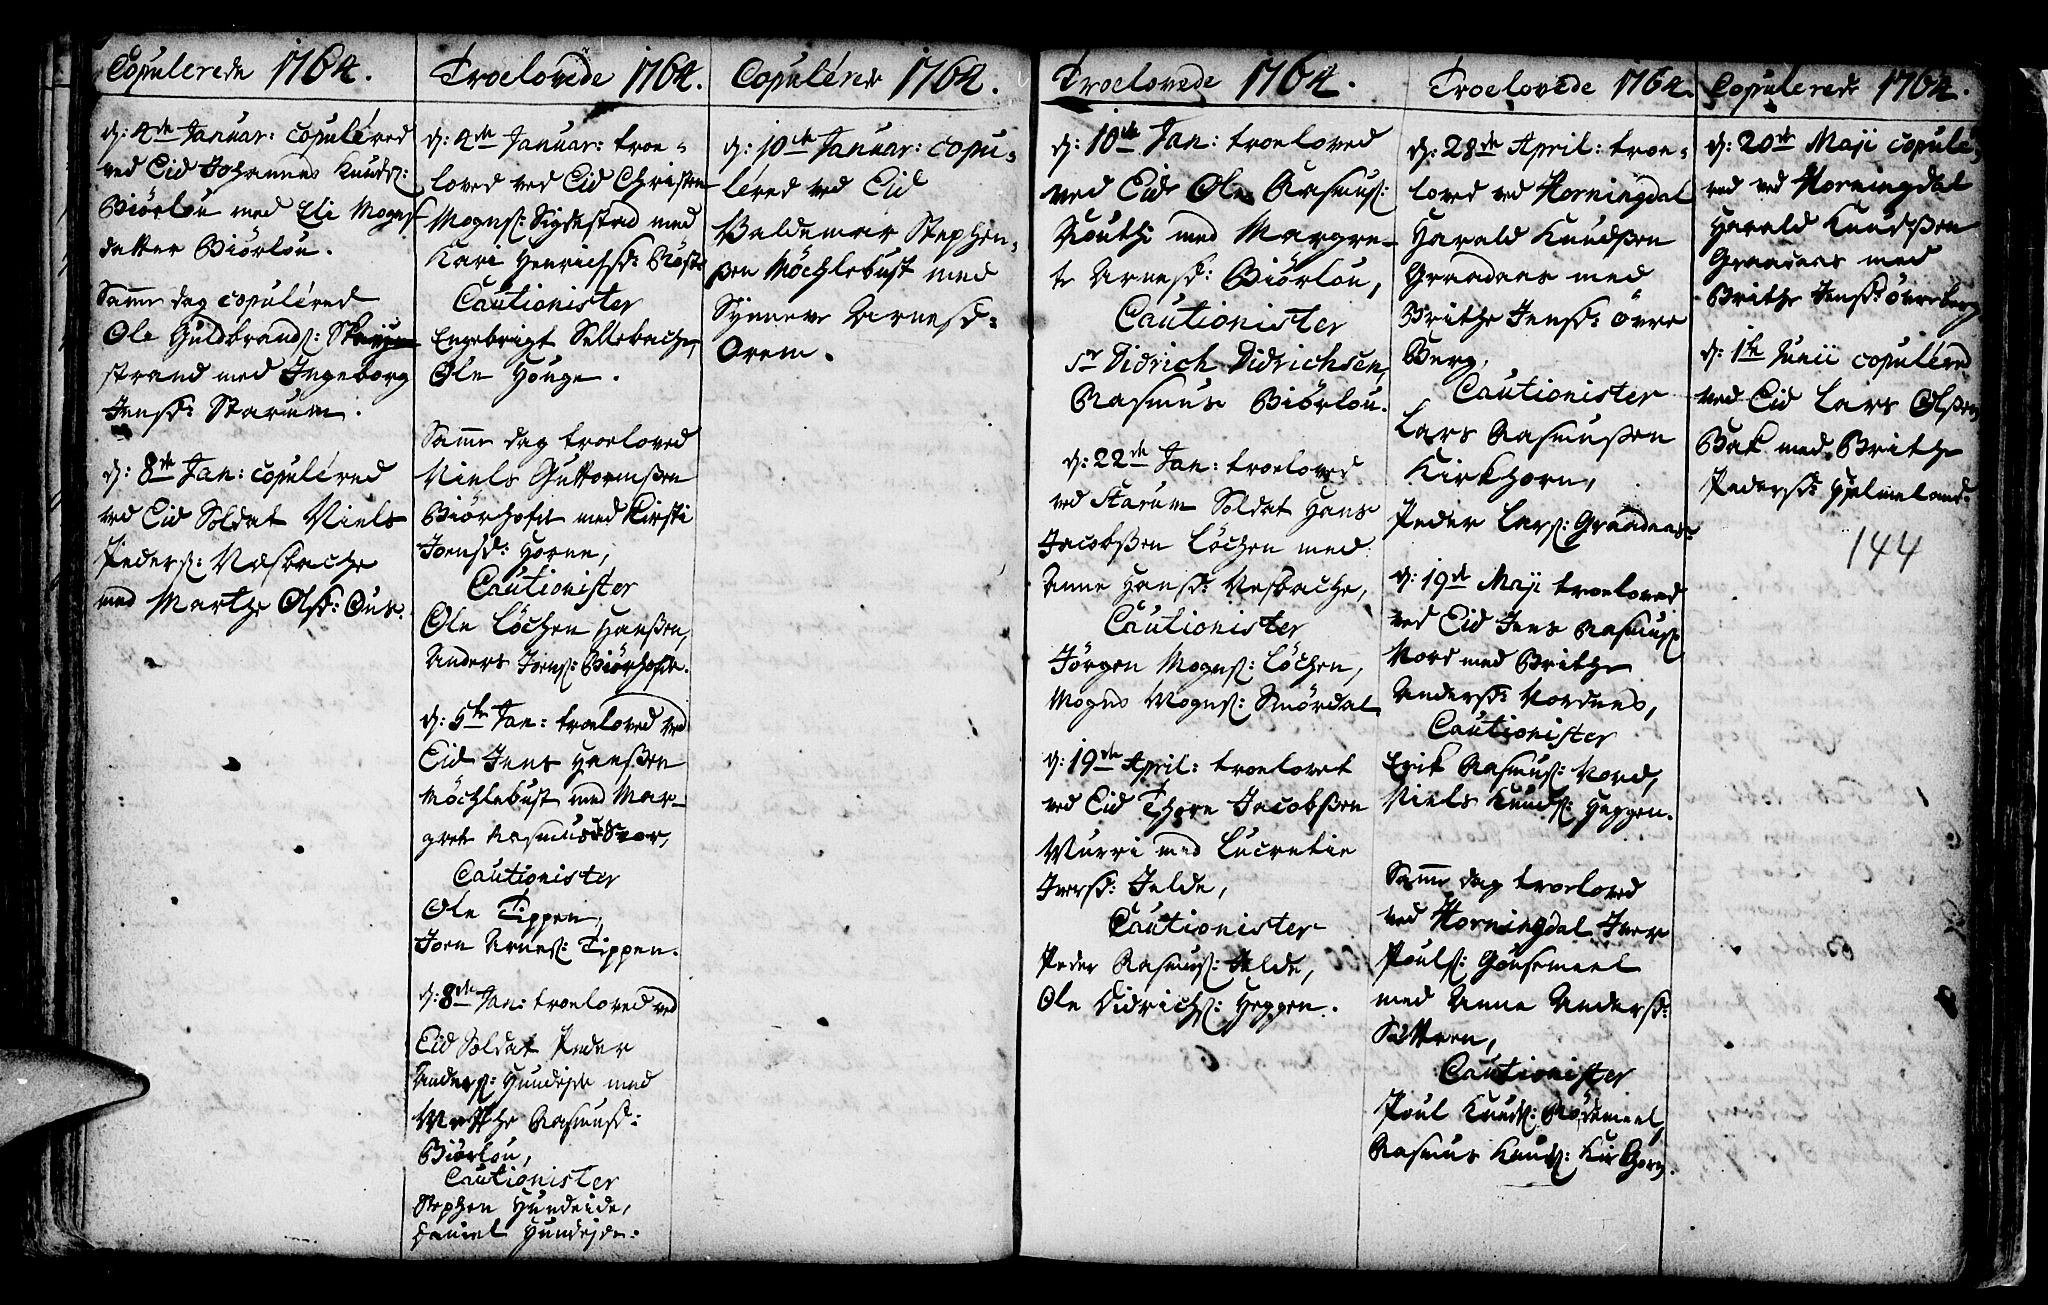 Copulerede 1764.
d: 4de Januar: copulered
ved Eid Johannes Knuds:
Biörlou med Eli Mogns
datter Biörlou.
Samme dag copulered
Ole Guldbrands:
strand med Ingeborg
Jensd: Starum.
d: 8de Jan: copulered
ved Eid Soldat Niels
Peders: Næsbache
med Marthe Olsd: Ous.
Troelovede 1764.
d: 4de Januar: troe-
loved ved Eid Christen
Mogns: Sigdestad med
Kari Henrichsd:
Cautionister
Engebrigt Sellebache,
Ole Houge.
Samme dag troeloved
Niels Guttormßen
Biörhofde med Kirsti
Joensd: Horne,
Cautionister
Ole Löchen Hanßen,
Anders Joens: Biörhofde.
d: 5te Jan: troeloved ved
Eid Jens Hanßen
Möchlebust med Mar-
grete Rasmusd: Svor,
Cautionister
Ole Tippen,
Joen Arnes: Tippen.
d: 8de Jan: troeloved ved
Eid Soldat Peder
Anders: Hundejde med
Marthe Rasmusd:
Biörlou,
Cautionister
Stephen Hundeide,
Daniel Hundejde.
Copulerede 1764.
d: 10de Januar: copu-
lered ved Eid
Valdemar Stephen-
ßen Möchlebust med
Synneve Arnesd:
Orem.
Troelovede 1764.
d: 10de Jan: troeloved
ved Eid Ole Rasmus:
med Margre-
te Arnesd: Biörlou,
Cautionister
Sr Didrich Didrichsen,
Rasmus Biörlou.
d: 22de Jan: troeloved
ved Starum Soldat Hans
Jacobßen Löchen med
Anne Hansd: Nesbache,
Cautionister
Jörgen Mogns: Löchen,
Mogns Mogns: Smördal
d: 19de April: troelovet
ved Eid Thore Jacobßen
Murri med Lucretie
Iversd: Jelde,
Cautionister
Peder Rasmus: Jelde,
Ole Didrichs: Heggen.
Troelovede 1764.
d: 28de April: troe-
loved ved Horningdal
Harald Knudßen
Graadaas med
Brithe Jensd: övre
Berg,
Cautionister
Lars Rasmußen
Kirkhorn,
Peder Lars: Graadaas
d: 19de Maji troeloved
ved Eid Jens Rasmus:
Nord med Brithe
Andersd: Nordnes,
Cautionister
Erik Rasmus: Nord,
Niels Knuds: Heggen.
Samme dag troeloved
ved Horningdal Iver
Pouls: Gousemeel
med Anne Andersd:
Sætren,
Cautionister
Poul Knuds:
Rasmus Knuds: Kirkhorn.
Copulerede 1764.
d: 20de Maji copule-
red ved Horningdal
Harald Knudßen
Graadaas med
Brithe Jensd: övreberg
d: 1te Junii copulered
ved Eid Lars Olßen
Bak med Brithe
Pedersd: Hjelmeland.
144